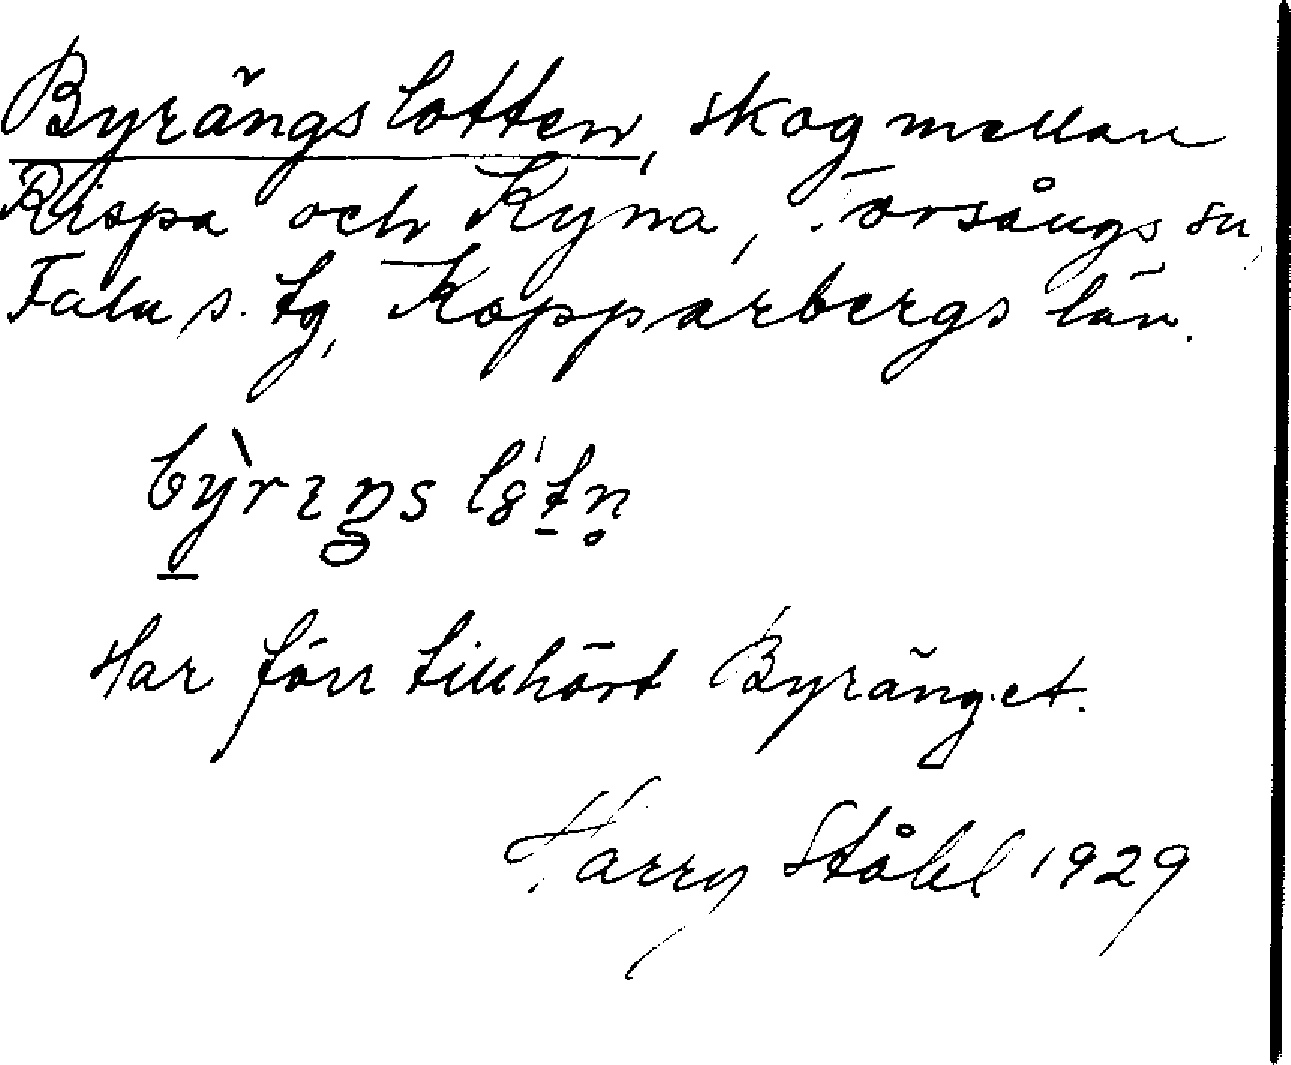 Byrängslotten, skog mellan
Rispa och Kyna, Torsångs sn,
Falu s. tg, Kopparbergs län.
bỳrɪŋs lòtn̥
Har förr tillhört Byränget.
Harry Ståhl 1929